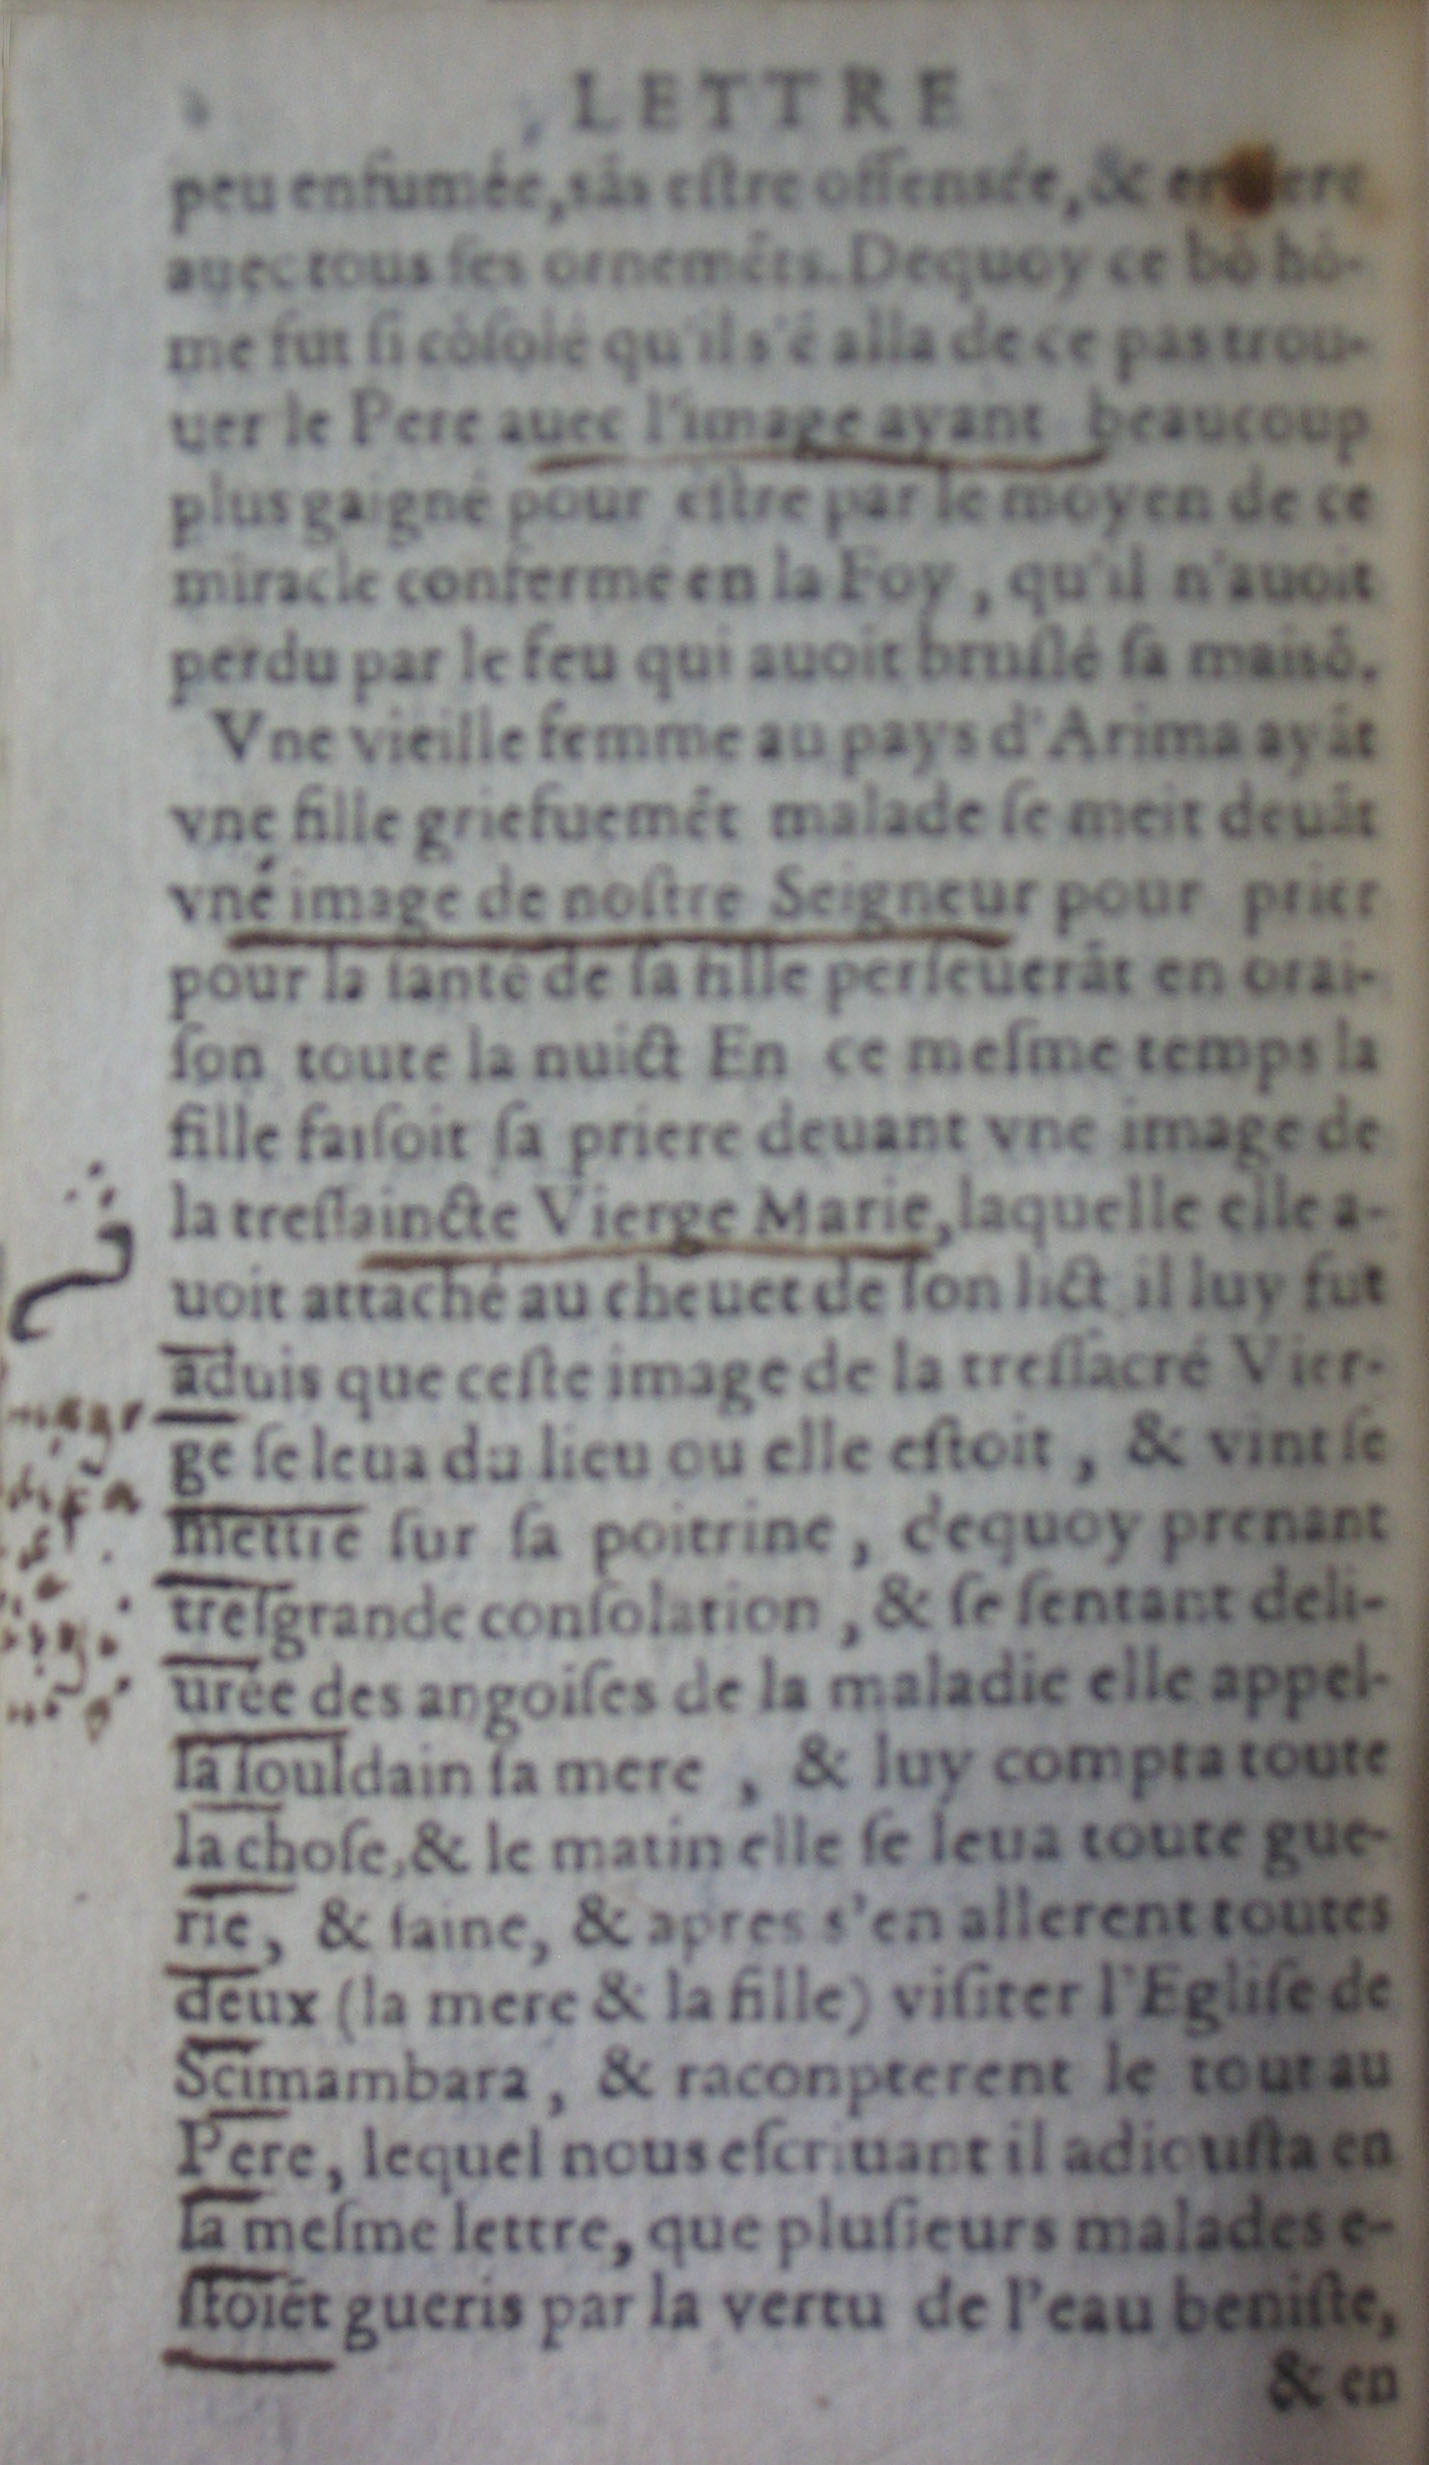 LETTRE
peu enfumée, sãs eſtre offensée, & ere
auec tous ſes ornemẽts. Dequoy ce bõ hõ-
me fut ſi cõſolé qu'il s'ẽ alla de ce pas trou-
uer le Pere auec l'image ayant beaucoup
plus gaigné pour eſtre par le moyen de ce
miracle confermé en la Foy, qu'il n'auoit
perdu par le feu qui auoit bruſlé ſa maisõ.
Vne vieille femme au pays d'Arima ayãt
vne fille griefuemẽt malade ſe meit deuãt
vne image de noſtre Seigneur pour prier
pour la ſanté de ſa fille perſeuerãt en orai-
ſon toute la nuict En ce meſme temps la
fille faiſoit ſa priere deuant vne image de
la treſſaincte Vierge Marie, laquelle elle a-
uoit attaché au cheuet de ſon lict il luy fut
aduis que ceſte image de la treſſacré Vier-
ge ſe leua du lieu ou elle eſtoit, & vint ſe
mettre ſur ſa poitrine, dequoy prenant
treſgrande conſolation, & ſe ſentant deli-
urée des angoiſes de la maladie elle appel-
la ſouldain ſa mere, & luy compta toute
la choſe, & le matin elle ſe leua toute gue-
rie, & ſaine, & apres s'en allerent toutes
deux (la mere & la fille) viſiter l'Egliſe de
Scimambara, & raconpterent le tout au
Pere, lequel nous eſcriuant il adiouſta en
la meſme lettre, que pluſieurs malades e-
ſtoiẽt gueris par la vertu de l'eau beniſte,
& en